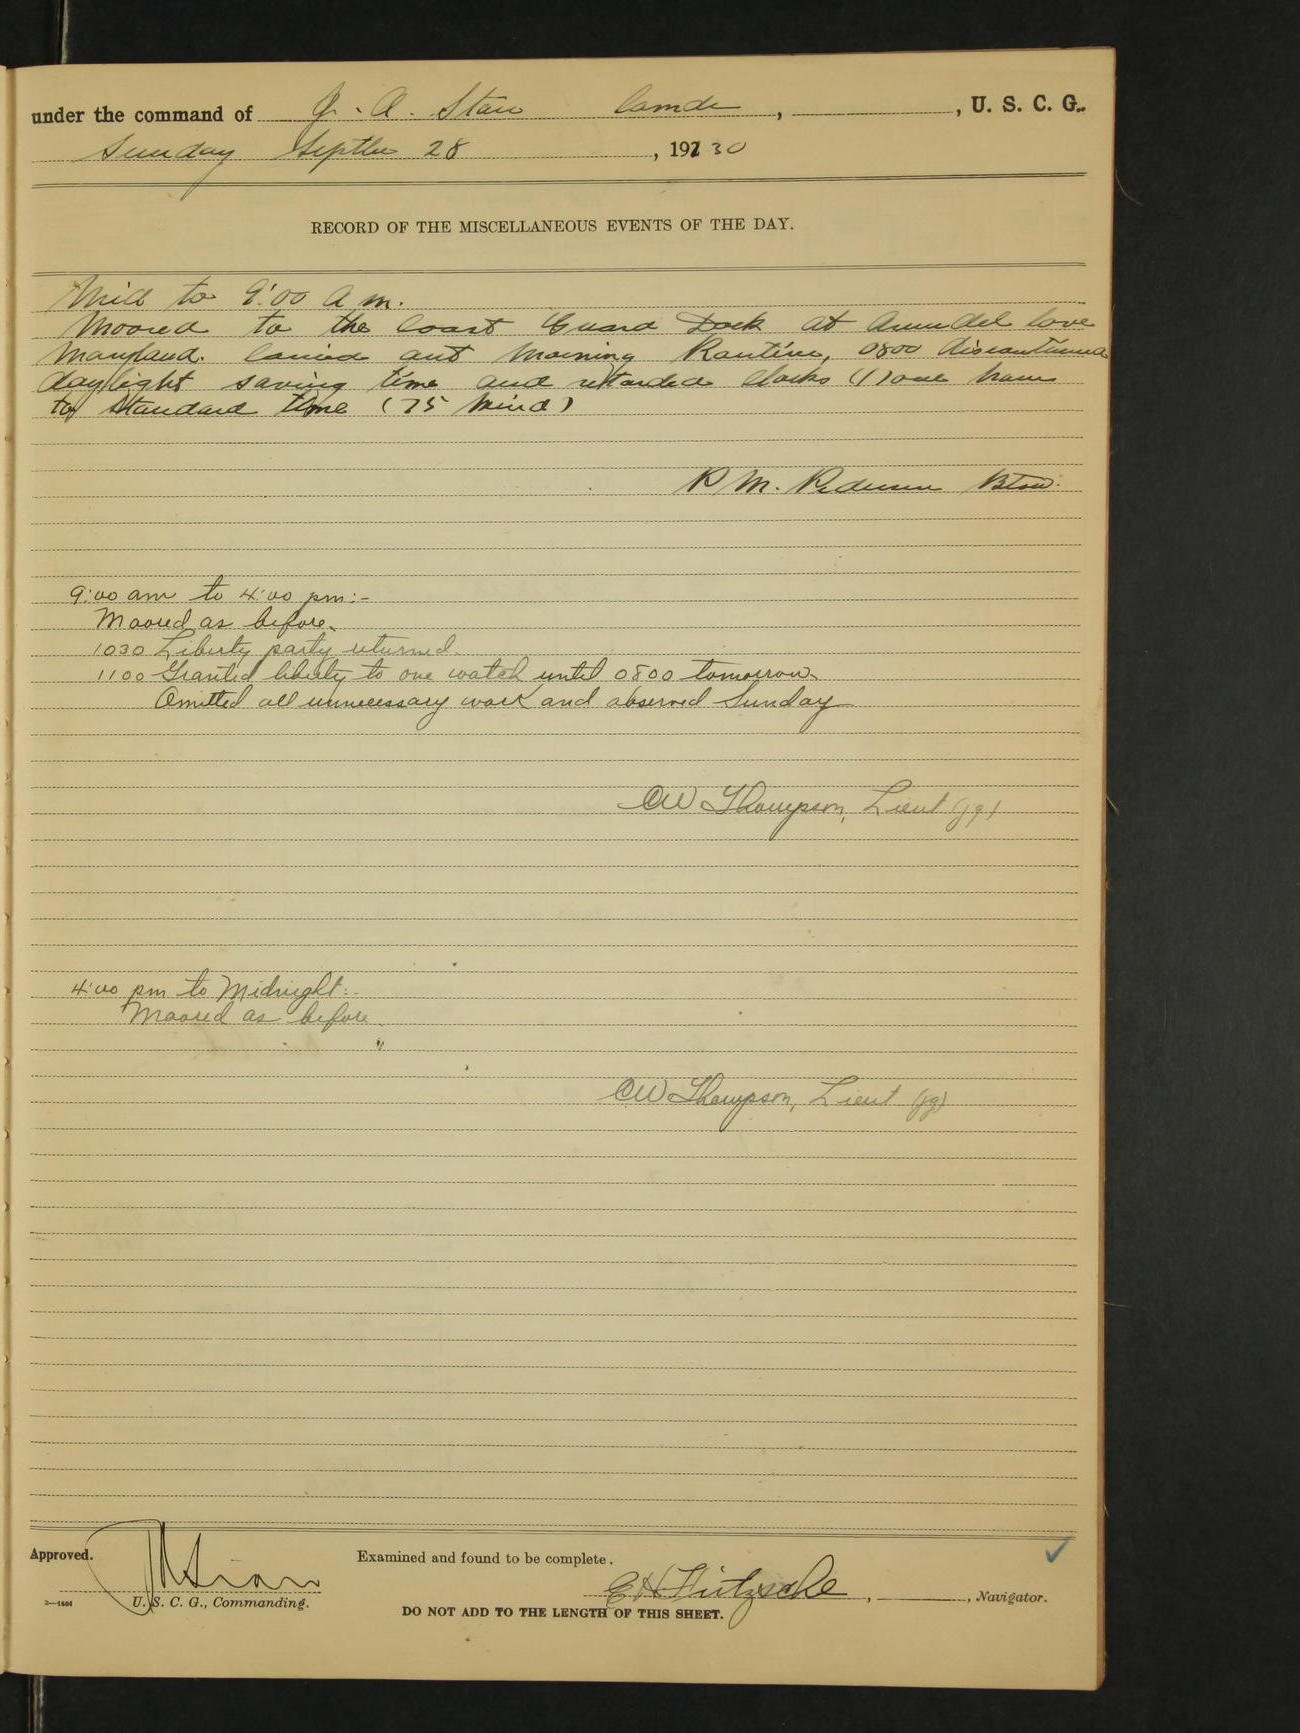 under the command of J. A. Starr Comdr , , U. S. C. G.
Sunday Septbr 28 , 192 30
RECORD OF THE MISCELLANEOUS EVENTS OF THE DAY.
Mid to 9:00 A m.
Moored to the Coast Guard Dock at Arundel Cove
Maryland. Carried out Morning Routine, 0800 discontinued
daylight saving time and retarded clocks (1) one hour
to Standard time (75 Merid)
P M. Pedersen Btsw.
9:00 am to 4:00 pm:-
Moored as before.
1030 Liberty party returned.
1100 Granted liberty to one watch until 0800 tomorrow.
Omitted all unnecessary work and observed Sunday
CW Thompson, Lieut (jg)
4:00 pm to Midnight:-
Moored as before.
CW Thompson, Lieut (jg)
Approved.
Examined and found to be complete.
E H Fritzsche , , Navigator.
2—1604
U. S. C. G., Commanding.
DO NOT ADD TO THE LENGTH OF THIS SHEET.